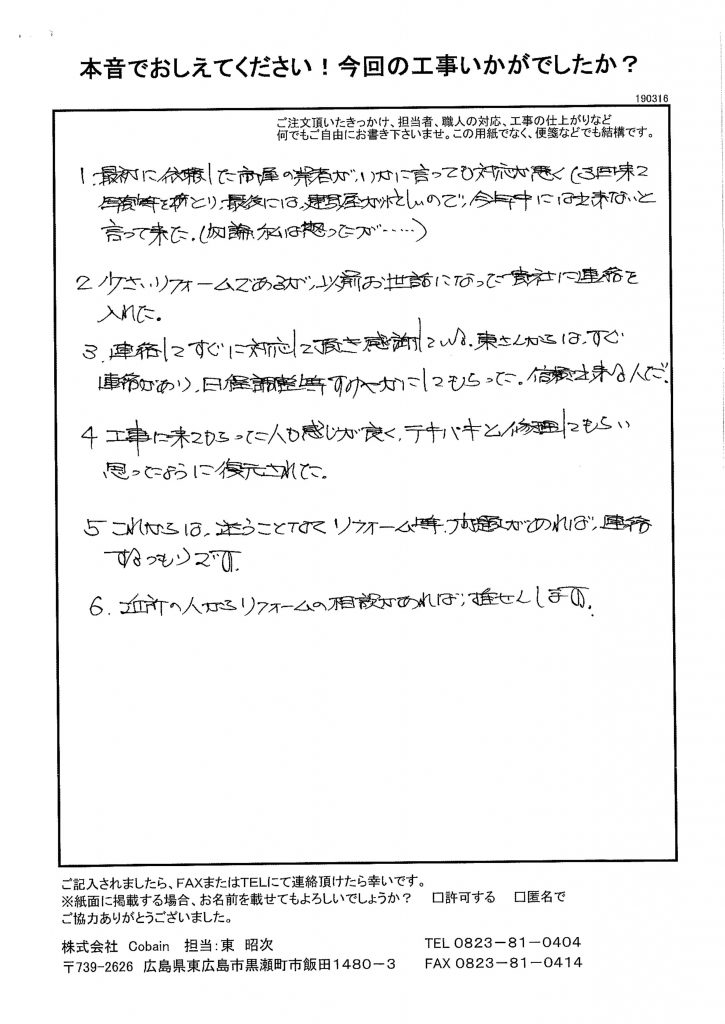 本音でおしえてください！今回の工事いかがでしたか？
190316
ご注文頂いたきっかけ、担当者、職人の対応、工事の仕上がりなど
何でもご自由にお書き下さいませ。この用紙でなく、便箋などでも結構です。
1. 最初に依頼した の業者がいかに言っても対応が悪く(3回来て
を とり、最後には、建具屋が忙しいので、今年中には出来ないと
言って来た。(勿論私は怒ったが……)
2 小さいリフォームであるが、以前お世話になった貴社に連絡を
入れた。
3. 連絡してすぐに対応して頂き感謝している。東さんからは、すぐ
連絡があり、日程調整等すみやかにしてもらった。信頼出来る人だ。
4 工事に来てもらった人も感じが良く、テキパキと修理してもらい
思ったように復元された。
5 これからは、迷うことなくリフォーム等、問題があれば、連絡
するつもりです。
6. 近所の人からリフォームの相談があれば、推せんします。
ご記入されましたら、FAXまたはTELにて連絡頂けたら幸いです。
※紙面に掲載する場合、お名前を載せてもよろしいでしょうか？ □許可する □匿名で
ご協力ありがとうございました。
株式会社 Cobain 担当：東 昭次 TEL 0823-81-0404
〒739-2626 広島県東広島市黒瀬町市飯田1480-3 FAX 0823-81-0414